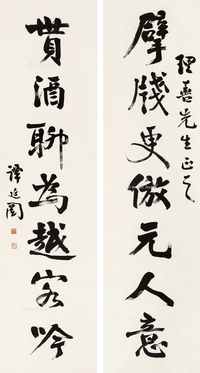 擘牋更倣元人意
理善先生正之
貰酒聊為越客吟
譚延闓